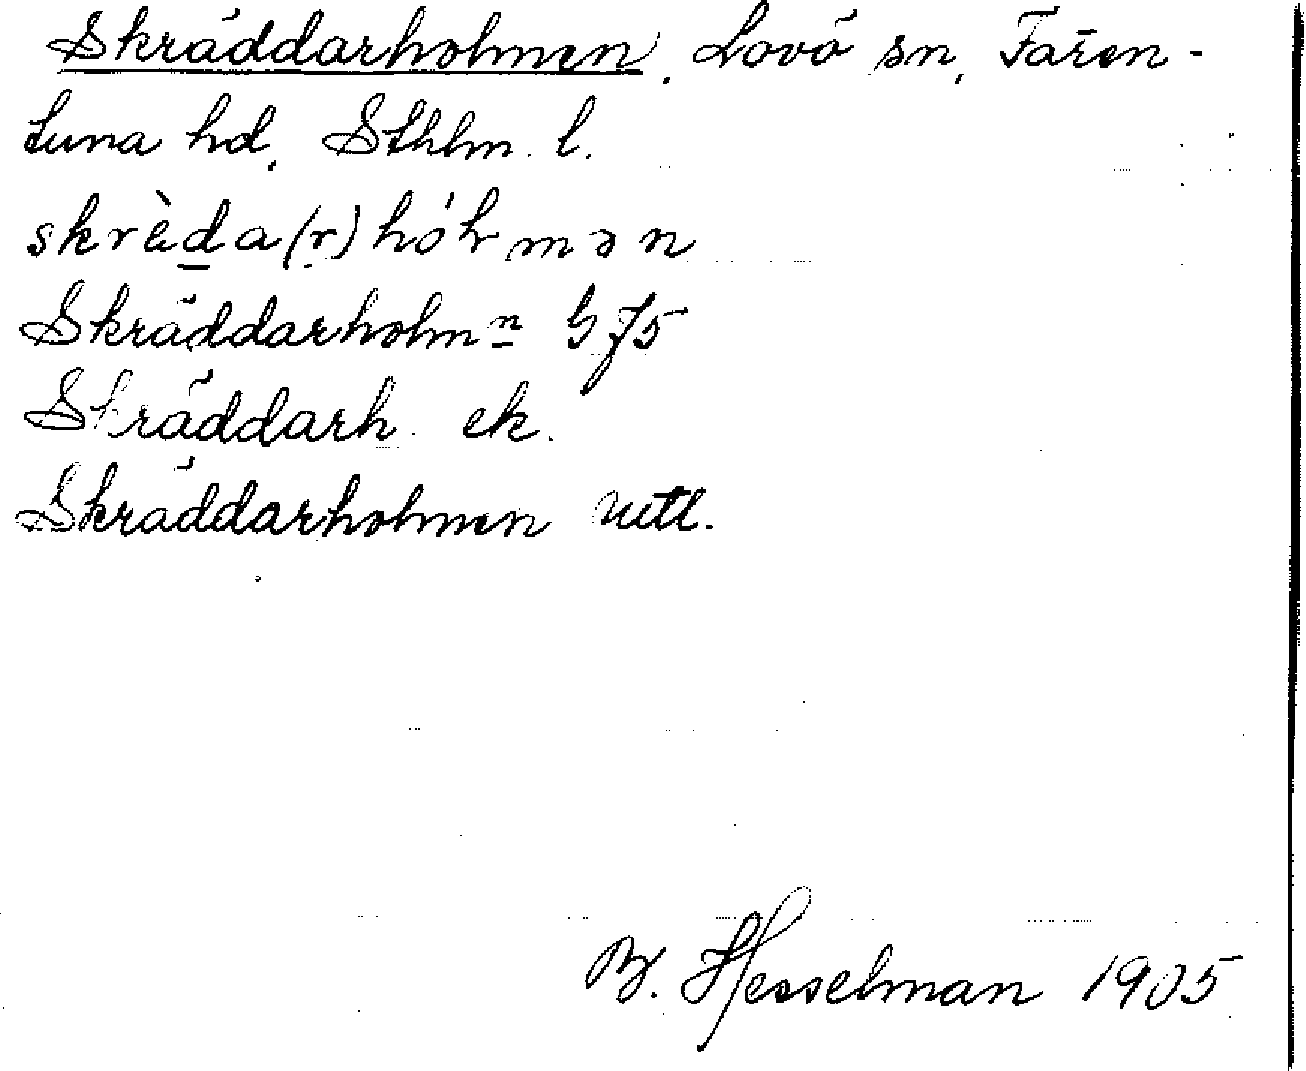 Skräddarholmen, Lovö sn, Fären-
tuna hd, Sthlm. l.
skrèda(r)hólmən
Skräddarholmn G 75
Skräddarh. ek.
Skräddarholmen uttl.
B. Hesselman 1905